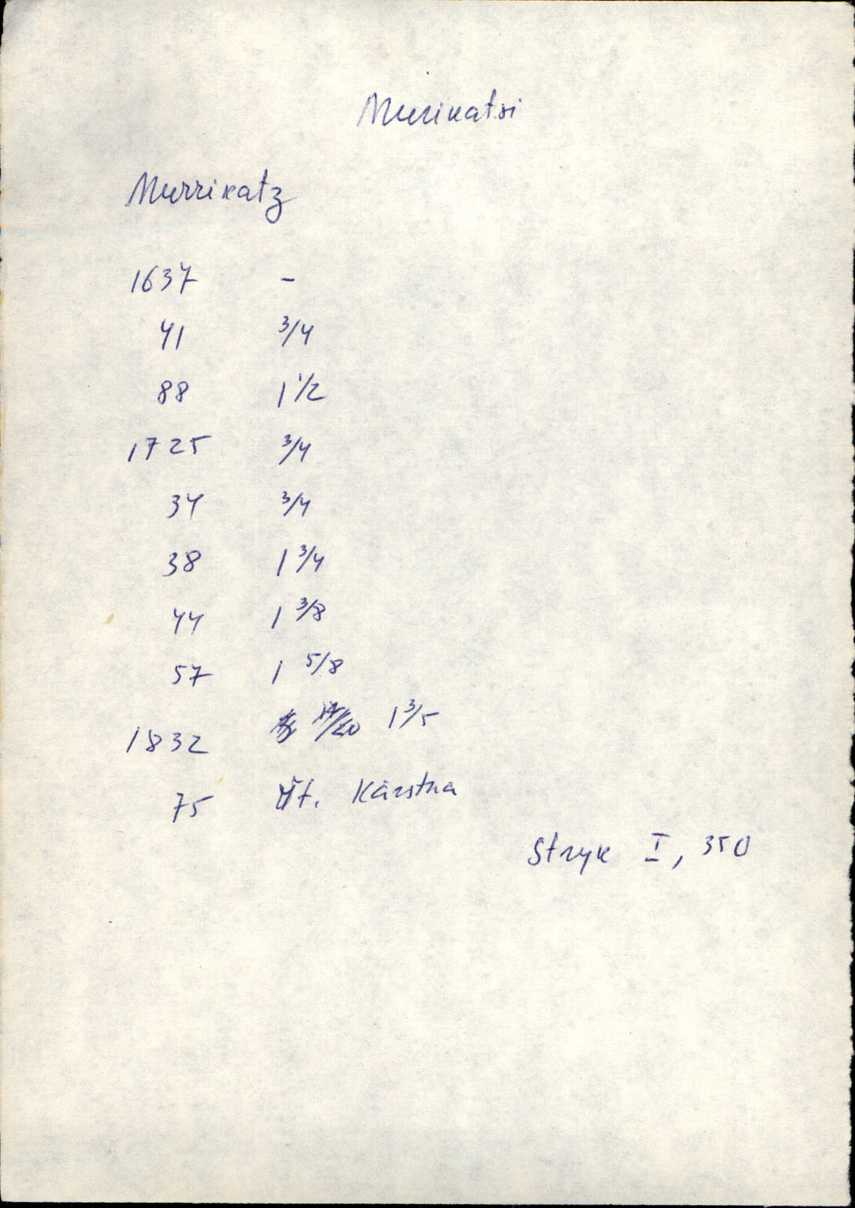 Murikatsi
Murrikatz
1637 -
41 3/4
88 1 1/2
1725 3/4
34 3/4
38 1 3/4
44 1 3/8
57 1 5/8
1832 17/20 1 3/5
75 Vt. Kärstna
Stryk I, 350